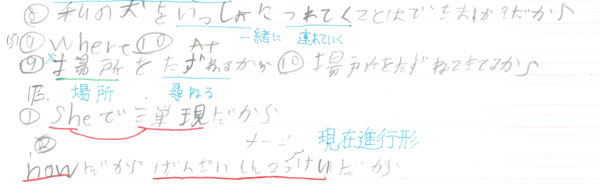 ⑧ 私の犬をいっしょにつれてくことはできますか?だから
⑦ Where ⑩ At 一緒に 連れていく
⑨ 場所をたずねるから ⑩ 場所をたずねてきてるから
正. 場所 尋ねる
① Sheで三単現だから
② 現在進行形
nowだから げんざいしんこうけいだから